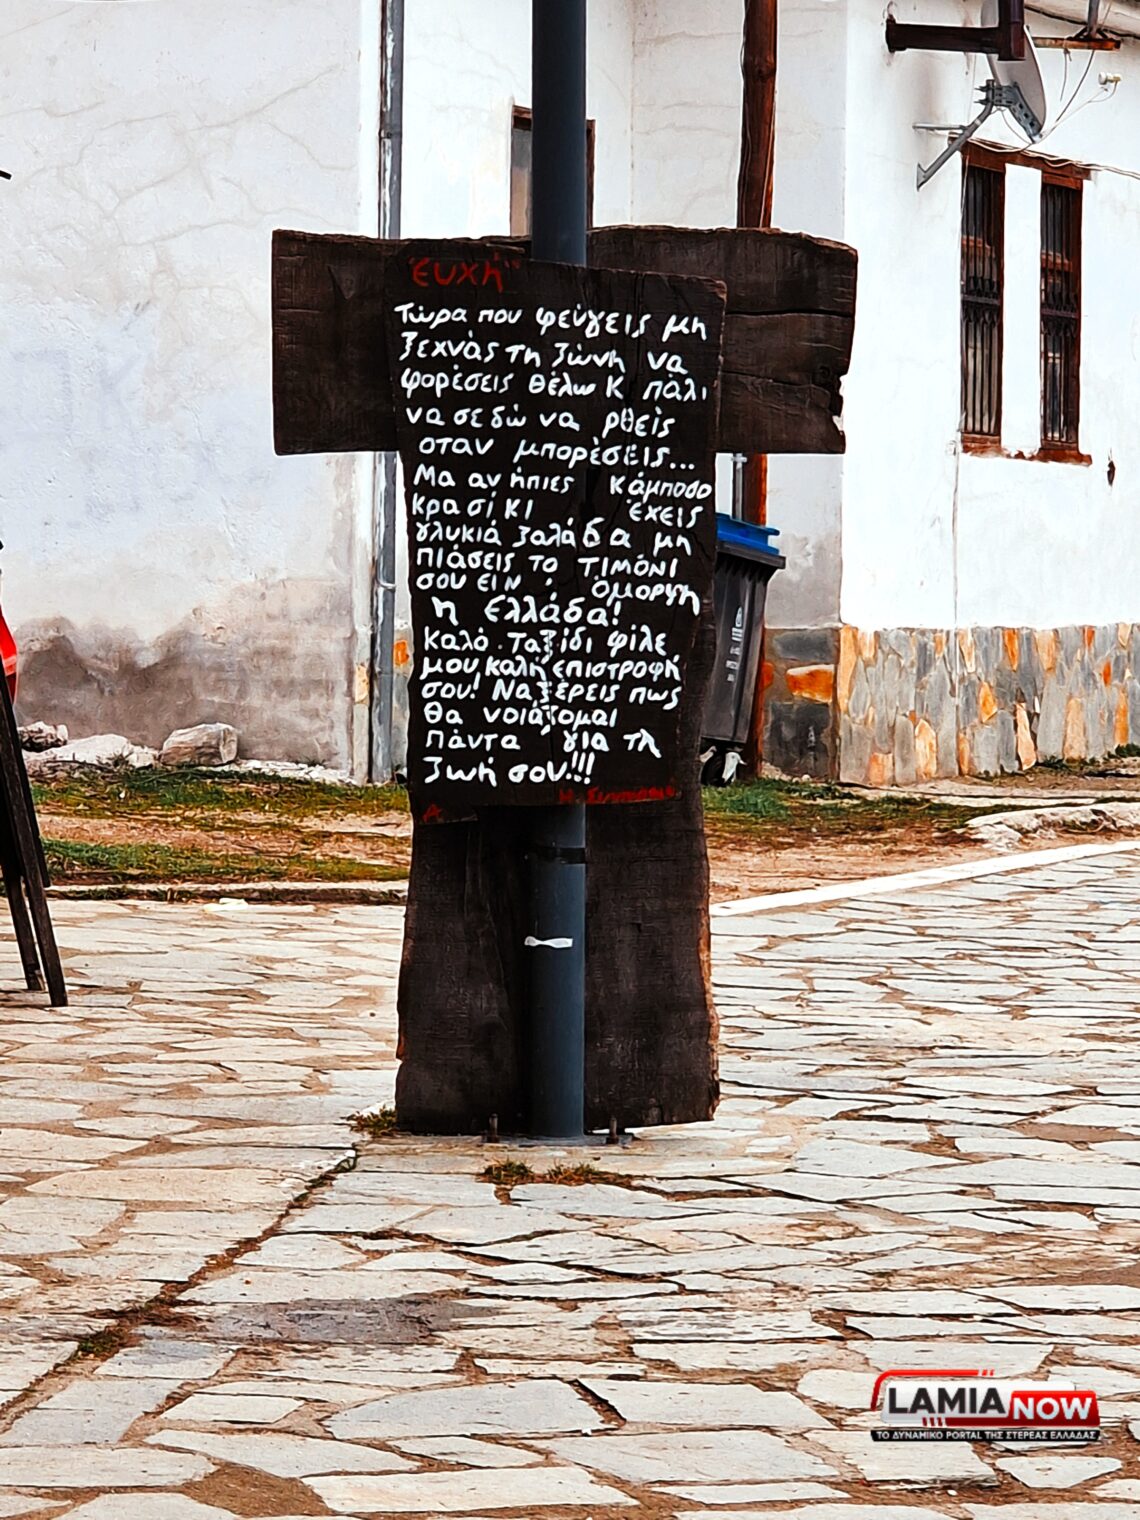 "ΕΥΧΗ"
Τώρα που φεύγεις μη
ξεχνάς τη ζώνη να
φορέσεις θέλω Κ πάλι
να σε δώ να ρθείς
οταν μπορέσεις...
Μα αν ήπιες κάμποσο
κρασί κι έχεις
γλυκιά ζαλάδα μη
πιάσεις το τιμόνι
σου ειν' όμορφη
η Ελλάδα!
Καλό ταξίδι φίλε
μου καλή επιστροφή
σου! Να ξέρεις πως
θα νοιάζομαι
πάντα για τη
ζωή σου!!!
LAMIA NOW
ΤΟ ΔΥΝΑΜΙΚΟ PORTAL ΤΗΣ ΣΤΕΡΕΑΣ ΕΛΛΑΔΑΣ